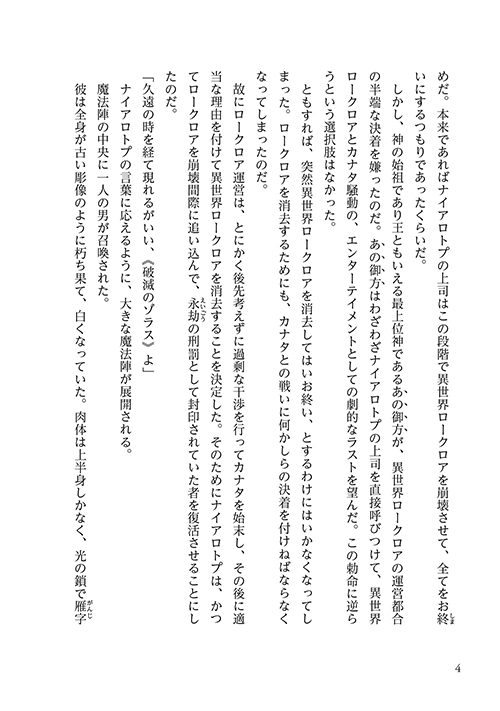 めだ。本来であればナイアロトプの上司はこの段階で異世界ロークロアを崩壊させて、全てをお終
いにするつもりであったくらいだ。
しかし、神の始祖であり王ともいえる最上位神であるあの御方が、異世界ロークロアの運営都合
の半端な決着を嫌ったのだ。あの御方はわざわざナイアロトプの上司を直接呼びつけて、異世界
ロークロアとカナタ騒動の、エンターテイメントとしての劇的なラストを望んだ。この勅命に逆ら
うという選択肢はなかった。
ともすれば、突然異世界ロークロアを消去してはいお終い、とするわけにはいかなくなってし
まった。ロークロアを消去するためにも、カナタとの戦いに何かしらの決着を付けねばならなく
なってしまったのだ。
故にロークロア運営は、とにかく後先考えずに過剰な干渉を行ってカナタを始末し、その後に適
当な理由を付けて異世界ロークロアを消去することを決定した。そのためにナイアロトプは、かつ
てロークロアを崩壊間際に追い込んで、永劫の刑罰として封印されていた者を復活させることにし
たのだ。
「久遠の時を経て現れるがいい、《破滅のゾラス》よ」
ナイアロトプの言葉に応えるように、大きな魔法陣が展開される。
魔法陣の中央に一人の男が召喚された。
彼は全身が古い彫像のように朽ち果て、白くなっていた。肉体は上半身しかなく、光の鎖で雁字
4